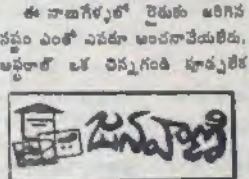 ఈ నాలుగేళ్ళలో రైతుకు జరిగిన
నష్టం ఎంతో ఎవరూ అంచనావేయలేరు.
ఆస్ట్రరాల్ ఒక చిన్నగండి పూడ్చలేక
జనవాణి